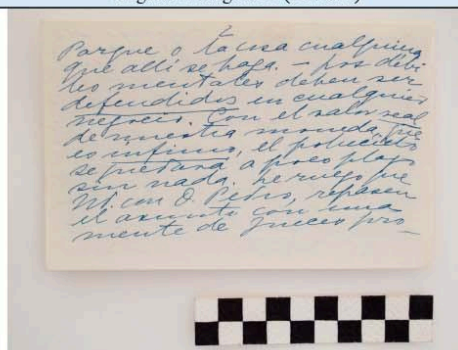 Porque o tacusa cualquiera
que allí se haga. - los debi
les mentales deben ser
defendidos en cualquier
negocio. Con el valor real
de nuestra moneda, que
es ínfimo, el
se quedará a poco plazo
sin nada, le ruego que
Ud. con D. Pedro, repasen
el asunto con una
mente de jueces pro